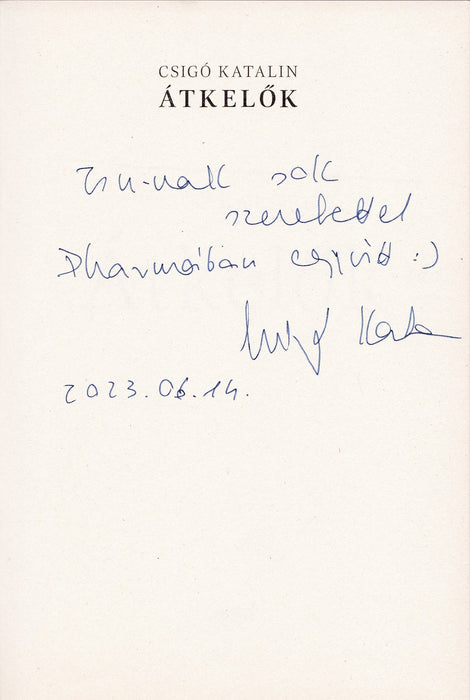 CSIGÓ KATALIN
ÁTKELŐK
sok
szeretettel
Dharmában együtt :)
Csigó Kata
2023.06.14.